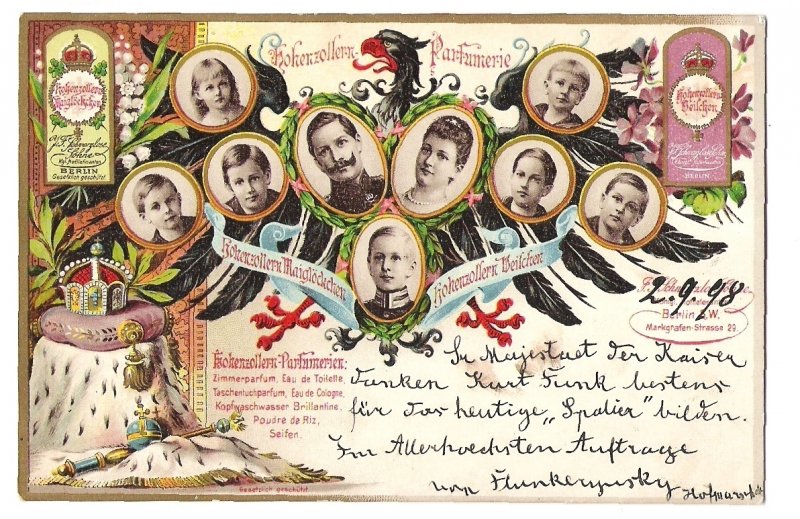 Hohenzollern Parfümerie
Hohenzollern
Maiglöckchen
Söhne
Kgl. Hoflieferanten
BERLIN
Gesetzlich geschützt
Hohenzollern
Veilchen
BERLIN
Hohenzollern Maiglöckchen
Hohenzollern Veilchen
2.9.98
Berlin S.W.
Markgrafen-Strasse 29.
Hohenzollern-Parfümerien:
Zimmerparfum, Eau de Toilette,
Taschentuchparfum, Eau de Cologne,
Kopfwaschwasser Brillantine,
Poudre de Riz,
Seifen.
Gesetzlich geschützt.
Sr Majestaet der Kaiser
danken Kurt Funk bestens
für das heutige „Spalier" bilden.
Im Allerhoechsten Auftrage
von Flunkerynsky